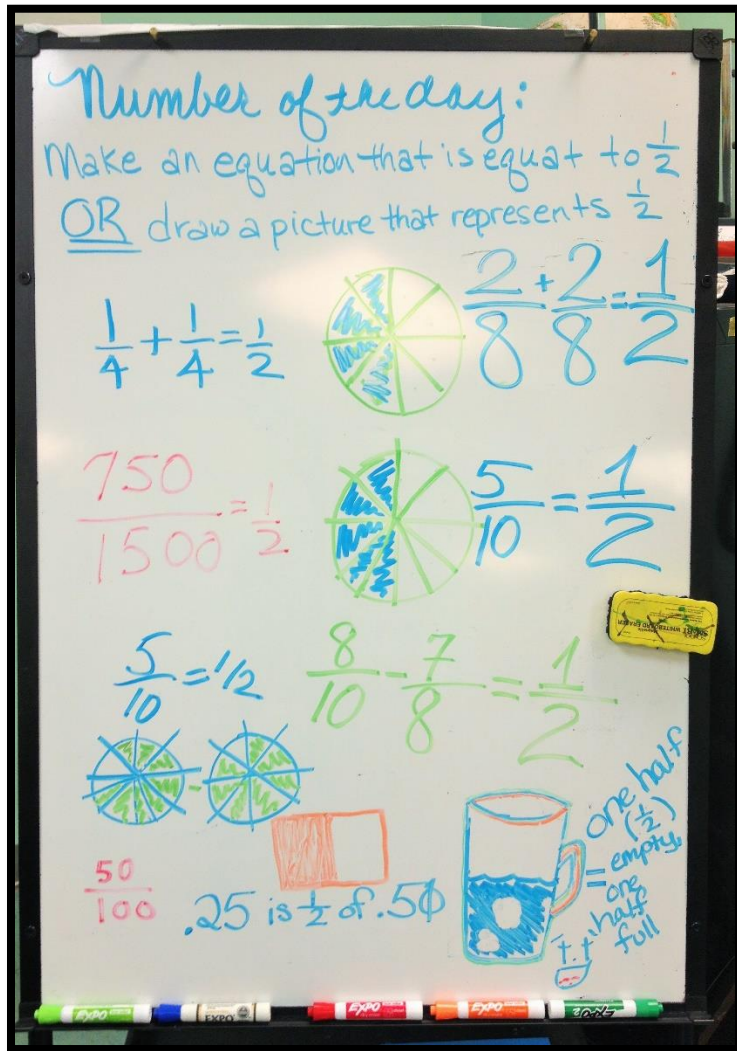 Number of the day:
Make an equation that is equat to 1/2
OR draw a picture that represents 1/2
1/4 + 1/4 = 1/2
2/8 + 2/8 = 1/2
750/1500 = 1/2
5/10 = 1/2
5/10 = 1/2
8/10 - 7/8 = 1/2
50/100
.25 is 1/2 of .50
one half
(1/2)
= empty,
one
half
full
WHITEBOARD ERASER
EXPO
EXPO
EXPO
EXPO
EXPO